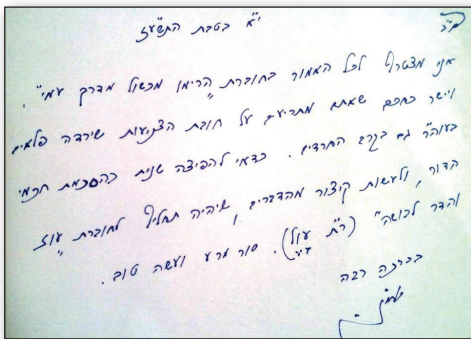 ב"ה
י"א בטבת התשע"ז
אני מצטרף לכל האמור בחוברת "הרימו מכשול מדרך עמי".
ויישר כחכם שאתם מתריעים על חובת הצניעות שירדה פלאים
בעוה"ר גם בקרב החרדים. כדאי להפיצה שנית בהסכמת חכמי
הדור, ולעשות קיצור מהדברים, שיהיה תחליף לחוברת "עוז
והדר לבושה" (ר"ת עו"ל). סור מרע ועשה טוב.
בברכה רבה